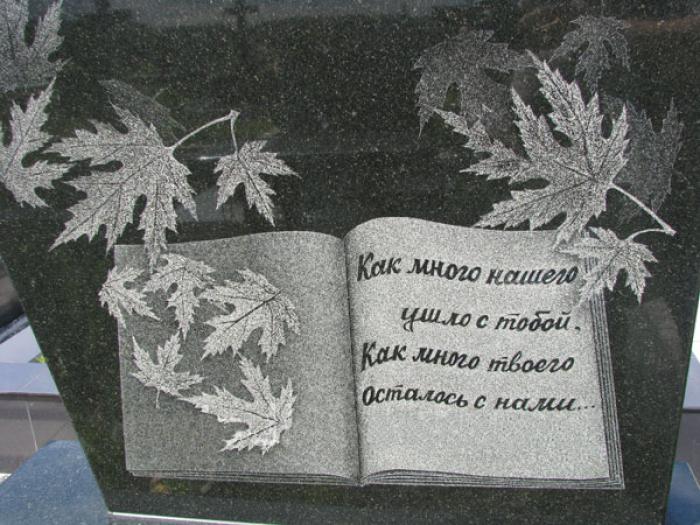 Как много нашего
ушло с тобой.
Как много твоего
осталось с нами...